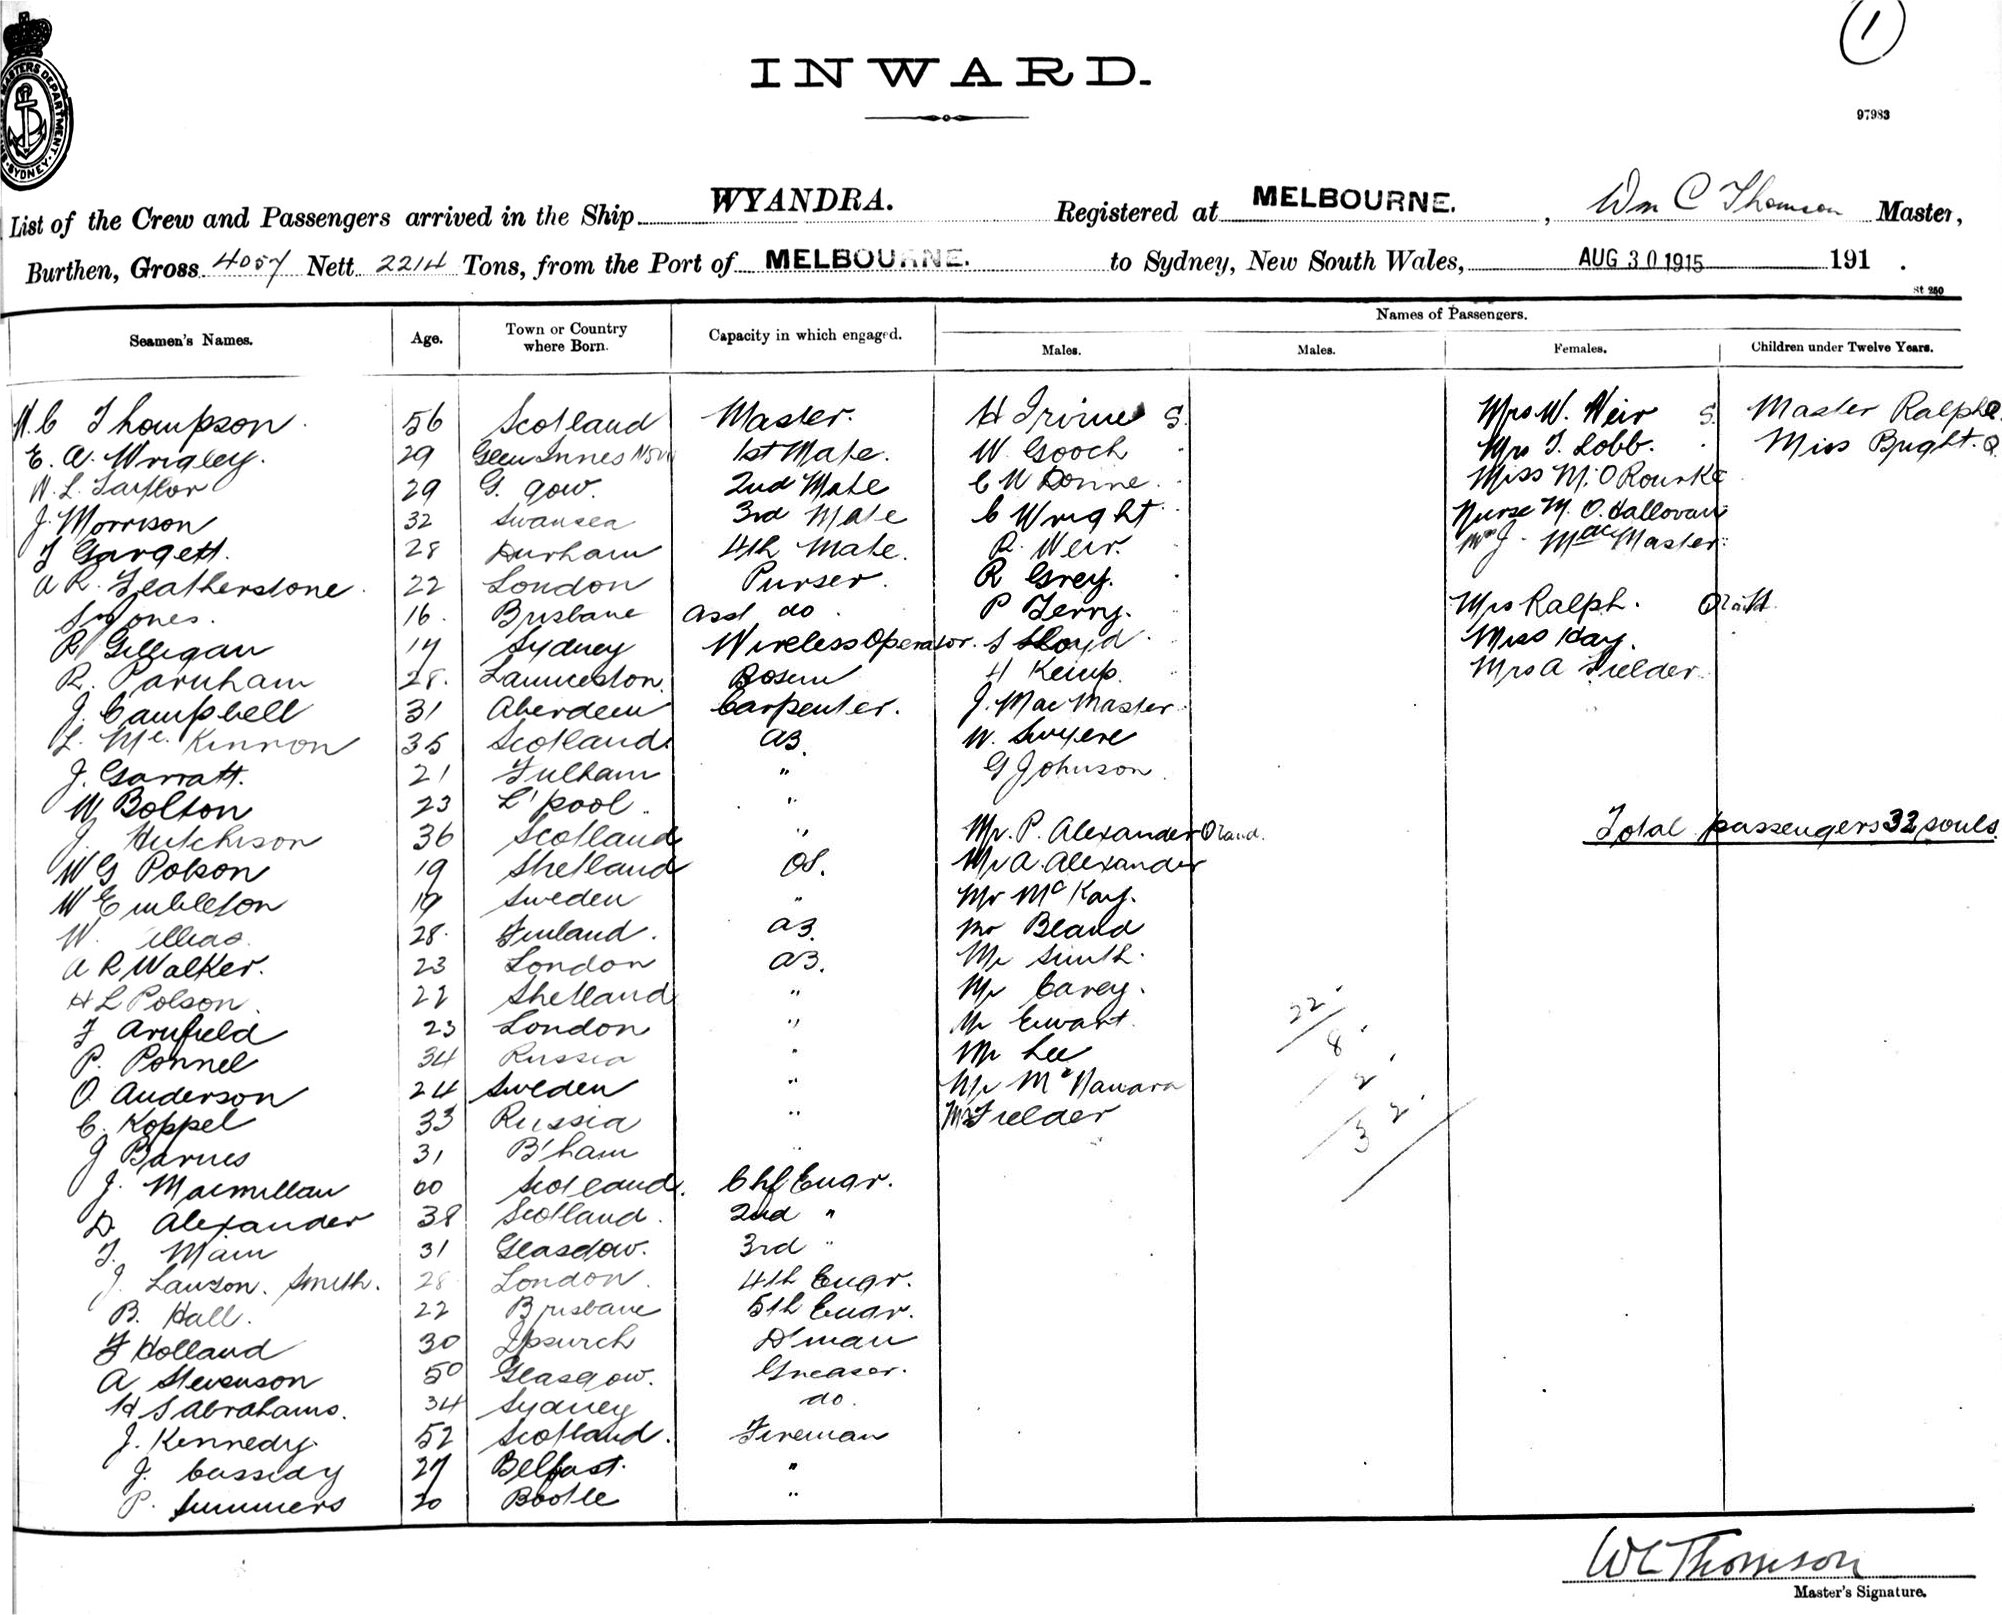 1
INWARD.
97983
List of the Crew and Passengers arrived in the Ship WYANDRA. Registered at MELBOURNE., Wm C Thomson Master,
Burthen, Gross 4057 Nett 2214 Tons, from the Port of MELBOURNE. to Sydney, New South Wales, AUG 30 1915 191 .
St 250
Names of Passengers.
Seamen's Names. Age. Town or Country where Born. Capacity in which engaged. Males. Males. Females. Children under Twelve Years.
W. C Thompson. 56 Scotland Master. H Irvine S. Mrs W. Weir S. Master Ralph Q.
E. A. Wrigley. 29 Glen Innes NSW 1st Mate. W. Gooch Mrs T. Lobb. Miss Bright. Q
W. L. Taylor 29 G. gow. 2nd Mate C W Donne. Miss M. O Rourke
J. Morrison 32 Swansea 3rd Mate C Wright Nurse M. O. Halloran
T Gargett. 28 Durham 4th Mate. R. Weir. J. MacMaster.
A R. Featherstone. 22 London Purser. R Grey.
Jones. 16. Brisbane Asst do. P Terry. Mrs Ralph.
R Gilligan 17 Sydney Wireless Operator. S Lloyd Miss Hay.
R. Parnham 28. Launceston. Bosun H Kemp. Mrs A Fielder.
J. Campbell 31 Aberdeen Carpenter. J. MacMaster
L. Mc. Kinnon 35 Scotland. AB. W.
J. Garratt. 21 Fulham " G Johnson.
W Bolton 23 L'pool. "
J. Hutchison 36 Scotland " Mr. P. Alexander Total passengers 32 souls.
W G Polson 19 Shetland OS. Mr A. Alexander
W Embleton 19 Sweden " Mr McKay.
W. Ellias. 28. Finland. AB. Mr Bland
A R Walker. 23 London AB. Mr Smith.
H L Polson. 22 Shetland " Mr Carey.
F Arnfield 23 London " Mr Ewart. 22
P. Ponnel 34 Russia " Mr Lee 8
O. Anderson 24 Sweden " Mr McNamara 2
C. Koppel 33 Russia " Mr Fielder 32
J Barnes 31 B'ham "
J. Macmillan 60 Scotland. Chf Engr.
D. Alexander 38 Scotland. 2nd "
T. Main 31 Glasgow. 3rd "
J. Lawson. Smith. 28 London. 4th Engr.
B. Hall. 22 Brisbane 5th Engr.
F Holland 30 Ipswich D'man
A Stevenson 50 Glasgow. Greaser.
H S Abrahams. 34 Sydney do.
J. Kennedy. 52 Scotland. Fireman
J. Cassidy 27 Belfast. "
P. Summers 20 Bootle "
WC Thomson
Master's Signature.